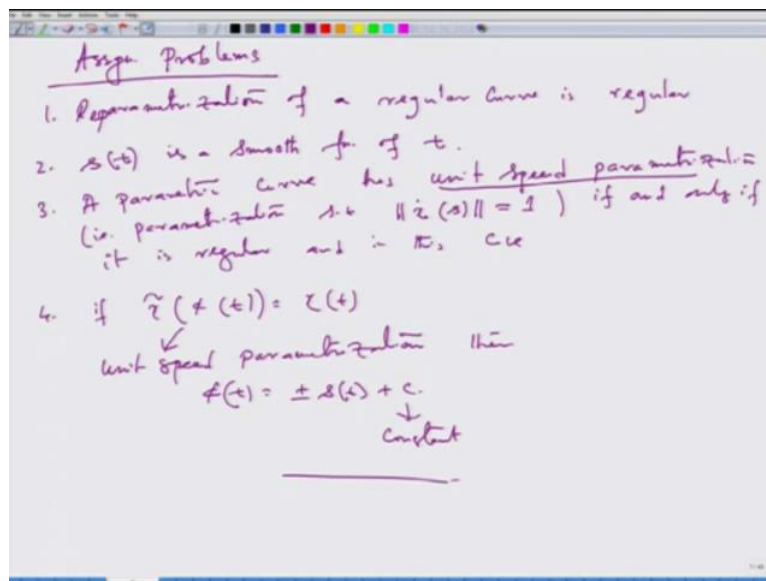 Assgn. Problems
1. Reparametrization of a regular curve is regular
2. s(t) is a smooth fn. of t.
3. A parametric curve has unit speed parametrization
(ie. parametrization s.t ||τ̇(s)|| = 1 ) if and only if
it is regular and in this case
4. if τ̃(φ(t)) = τ(t)
unit speed parametrization then
φ(t) = ± s(t) + c.
constant